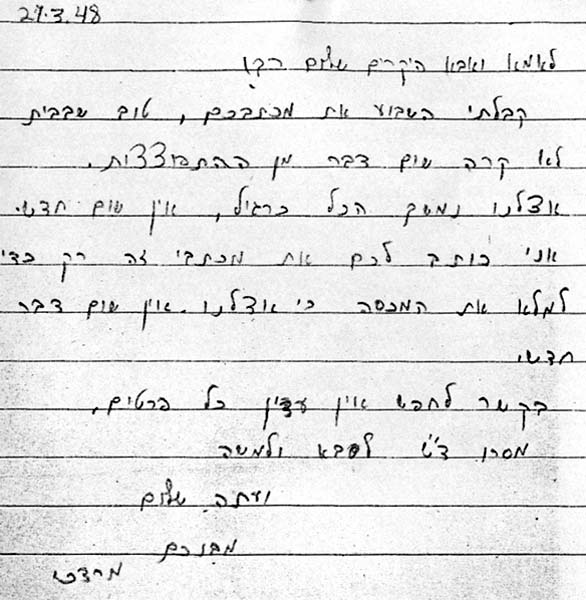 27.3.48
לאמא ואבא היקרים שלום רב!
קבלתי השבוע את מכתבכם, טוב שבבית
לא קרה שום דבר מן ההתפוצצות.
אצלנו נמשך הכל כרגיל, אין שום חדש.
אני כותב לכם את מכתבי זה רק כדי
למלא את המכסה כי אצלנו אין שום דבר
חדש.
בקשר לחפש אין עדין כל פרטים.
מסרו ד"ש לסבא ולמשה
ועתה שלום
מבנכם
מרדכי